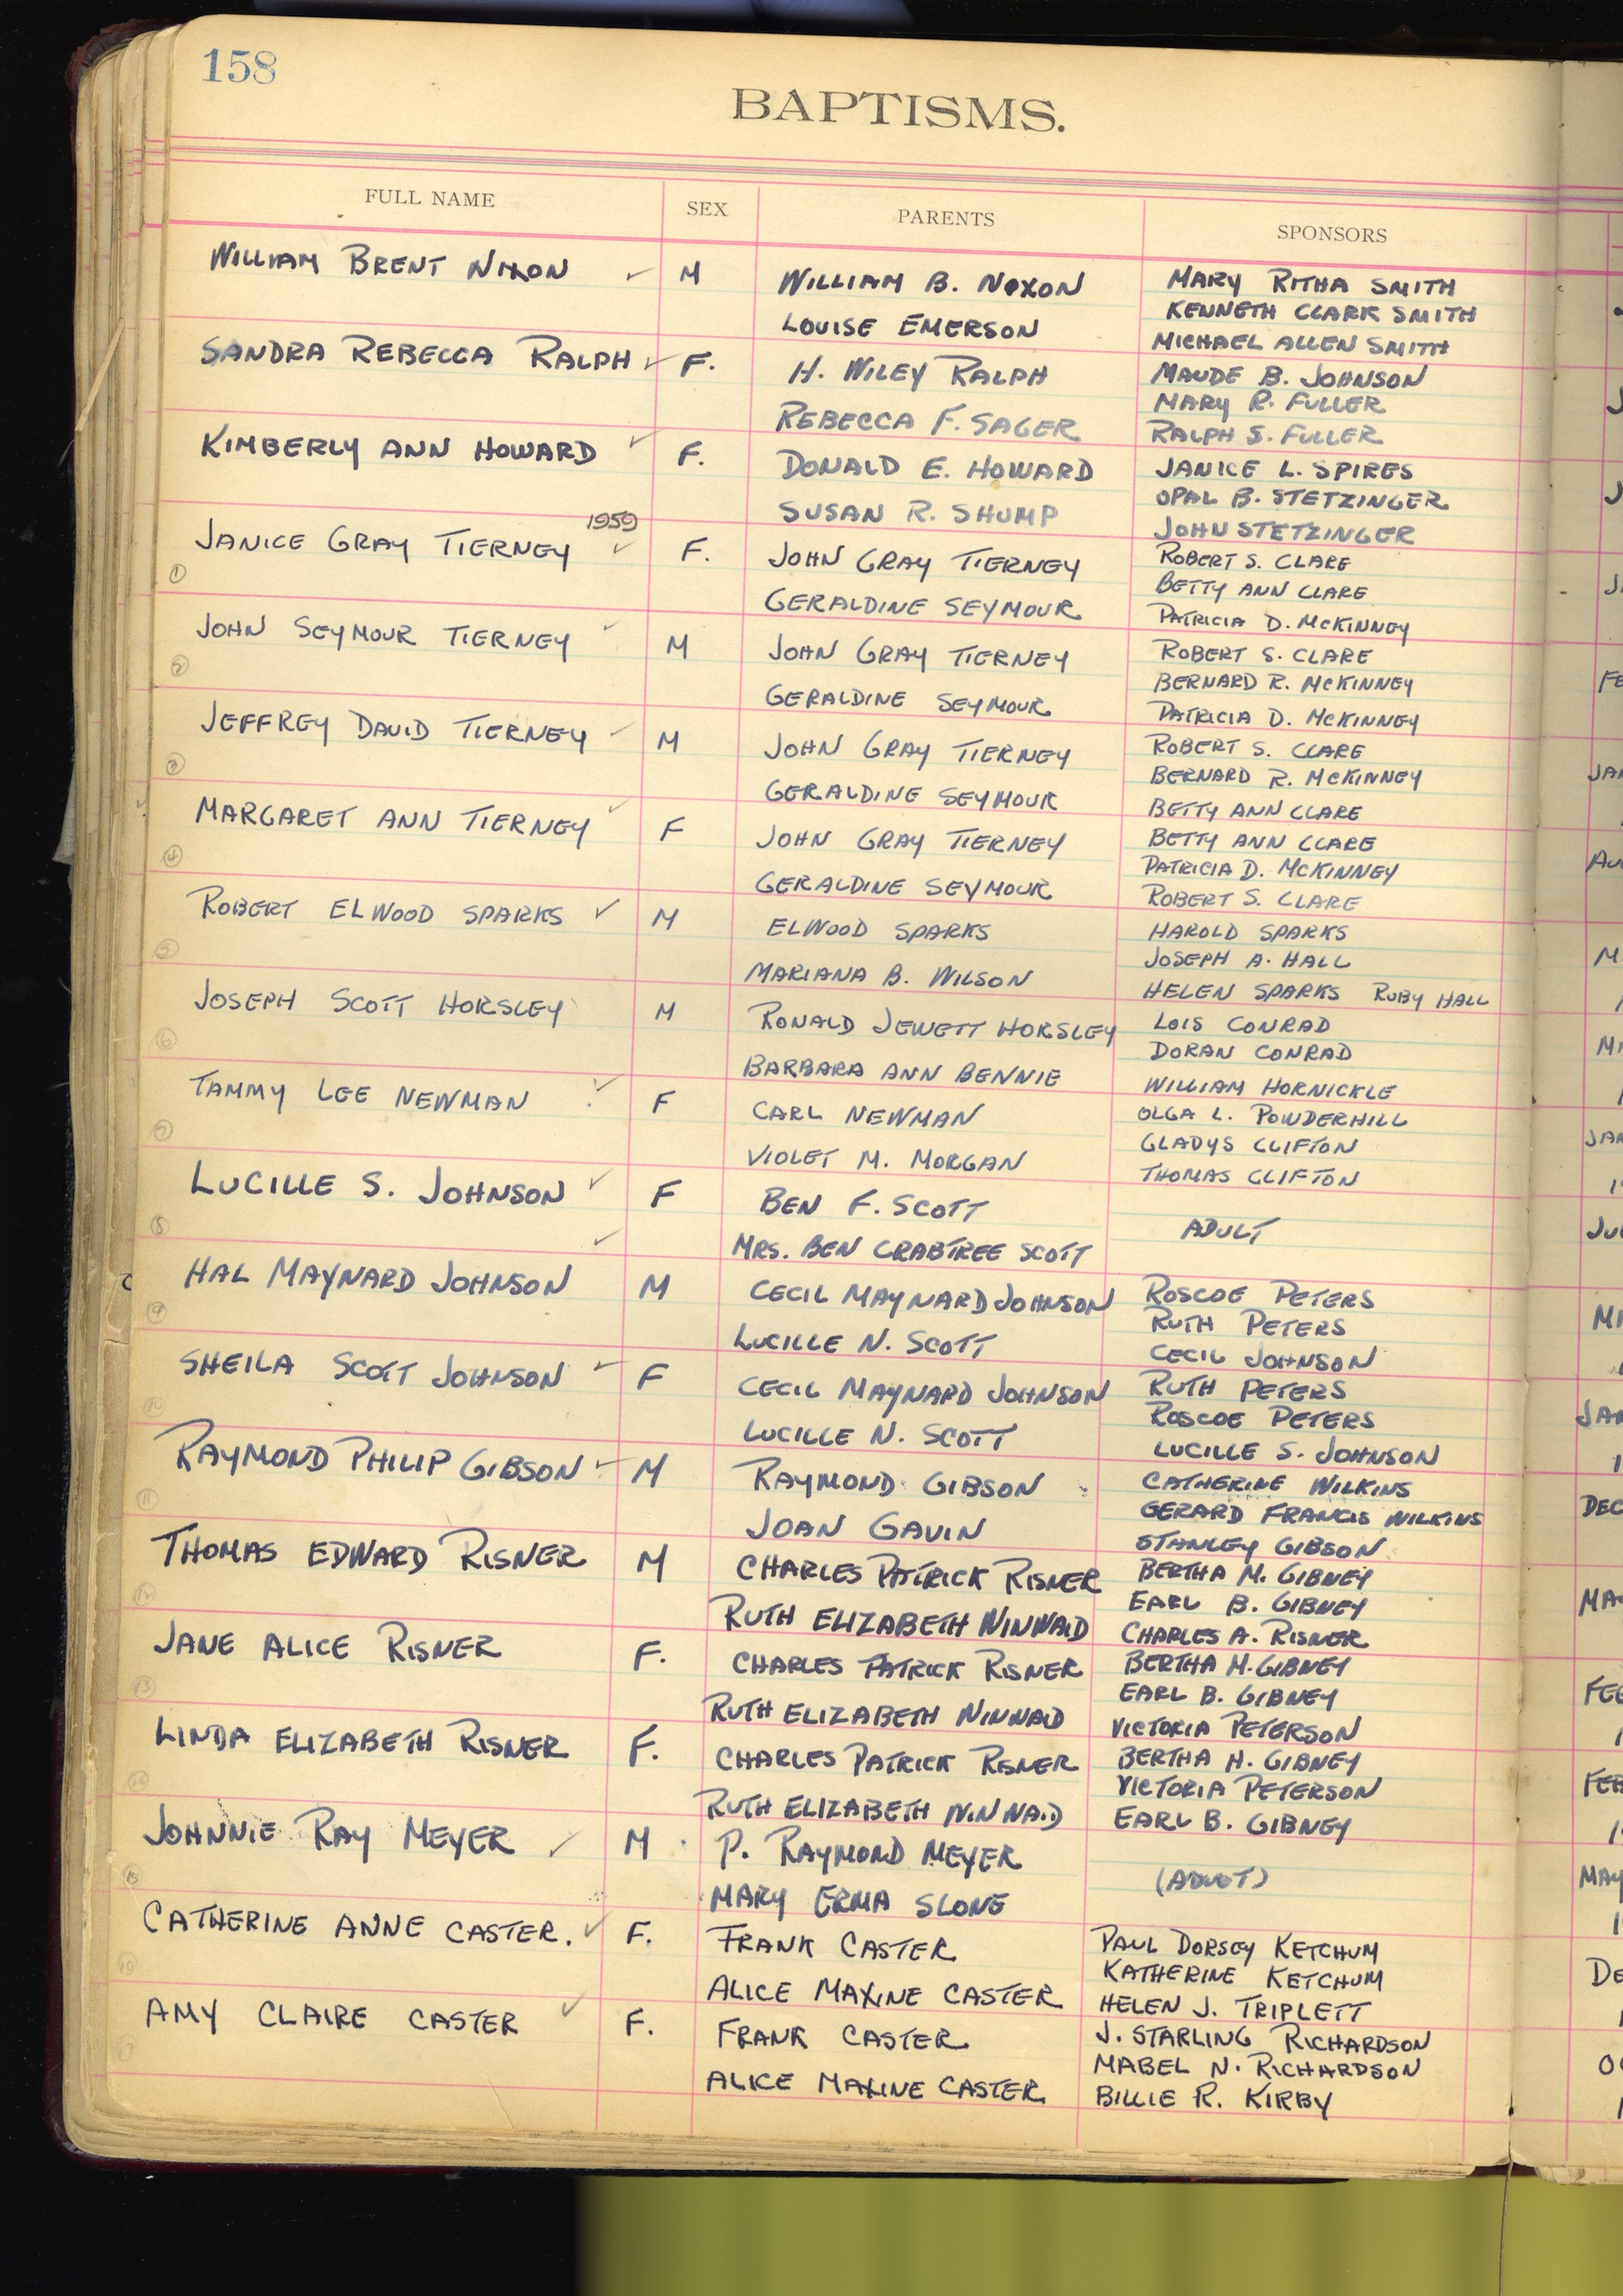 158
BAPTISMS.
FULL NAME SEX PARENTS SPONSORS
WILLIAM BRENT NIXON ✓ M WILLIAM B. NIXON MARY RITHA SMITH
KENNETH CLARK SMITH
LOUISE EMERSON MICHAEL ALLEN SMITH
SANDRA REBECCA RALPH ✓ F. H. WILEY RALPH MAUDE B. JOHNSON
MARY R. FULLER
REBECCA F. SAGER RALPH S. FULLER
KIMBERLY ANN HOWARD ✓ F. DONALD E. HOWARD JANICE L. SPIRES
OPAL B. STETZINGER
SUSAN R. SHUMP JOHN STETZINGER
1959
JANICE GRAY TIERNEY ✓ F. JOHN GRAY TIERNEY ROBERT S. CLARE
① BETTY ANN CLARE
GERALDINE SEYMOUR PATRICIA D. McKINNEY
JOHN SEYMOUR TIERNEY ✓ M JOHN GRAY TIERNEY ROBERT S. CLARE
② BERNARD R. McKINNEY
GERALDINE SEYMOUR PATRICIA D. McKINNEY
JEFFREY DAVID TIERNEY ✓ M JOHN GRAY TIERNEY ROBERT S. CLARE
③ BERNARD R. McKINNEY
GERALDINE SEYMOUR BETTY ANN CLARE
MARGARET ANN TIERNEY ✓ F JOHN GRAY TIERNEY BETTY ANN CLARE
④ PATRICIA D. McKINNEY
GERALDINE SEYMOUR ROBERT S. CLARE
ROBERT ELWOOD SPARKS ✓ M ELWOOD SPARKS HAROLD SPARKS
⑤ JOSEPH A. HALL
MARIANA B. WILSON HELEN SPARKS RUBY HALL
JOSEPH SCOTT HORSLEY M RONALD JEWETT HORSLEY LOIS CONRAD
⑥ DORAN CONRAD
BARBARA ANN BENNIE WILLIAM HORNICKLE
TAMMY LEE NEWMAN ✓ F CARL NEWMAN OLGA L. POWDERHILL
⑦ GLADYS CLIFTON
VIOLET M. MORGAN THOMAS CLIFTON
LUCILLE S. JOHNSON ✓ F BEN F. SCOTT ADULT
⑧ MRS. BEN CRABTREE SCOTT
HAL MAYNARD JOHNSON ✓ M CECIL MAYNARD JOHNSON ROSCOE PETERS
⑨ RUTH PETERS
LUCILLE N. SCOTT CECIL JOHNSON
SHEILA SCOTT JOHNSON ✓ F CECIL MAYNARD JOHNSON RUTH PETERS
⑩ ROSCOE PETERS
LUCILLE N. SCOTT LUCILLE S. JOHNSON
RAYMOND PHILIP GIBSON ✓ M RAYMOND GIBSON CATHERINE WILKINS
⑪ GERARD FRANCIS WILKINS
JOAN GAVIN STANLEY GIBSON
THOMAS EDWARD RISNER M CHARLES PATRICK RISNER BERTHA M. GIBNEY
⑫ EARL B. GIBNEY
RUTH ELIZABETH NINNAID CHARLES A. RISNER
JANE ALICE RISNER F. CHARLES PATRICK RISNER BERTHA M. GIBNEY
⑬ EARL B. GIBNEY
RUTH ELIZABETH NINNAID VICTORIA PETERSON
LINDA ELIZABETH RISNER F. CHARLES PATRICK RISNER BERTHA H. GIBNEY
⑭ VICTORIA PETERSON
RUTH ELIZABETH NINNAID EARL B. GIBNEY
JOHNNIE RAY MEYER ✓ M P. RAYMOND MEYER (ADULT)
⑮ MARY ERMA SLONE
CATHERINE ANNE CASTER. ✓ F. FRANK CASTER PAUL DORSEY KETCHUM
⑯ KATHERINE KETCHUM
ALICE MAXINE CASTER HELEN J. TRIPLETT
AMY CLAIRE CASTER ✓ F. FRANK CASTER J. STARLING RICHARDSON
⑰ MABEL N. RICHARDSON
ALICE MAXINE CASTER BILLIE R. KIRBY